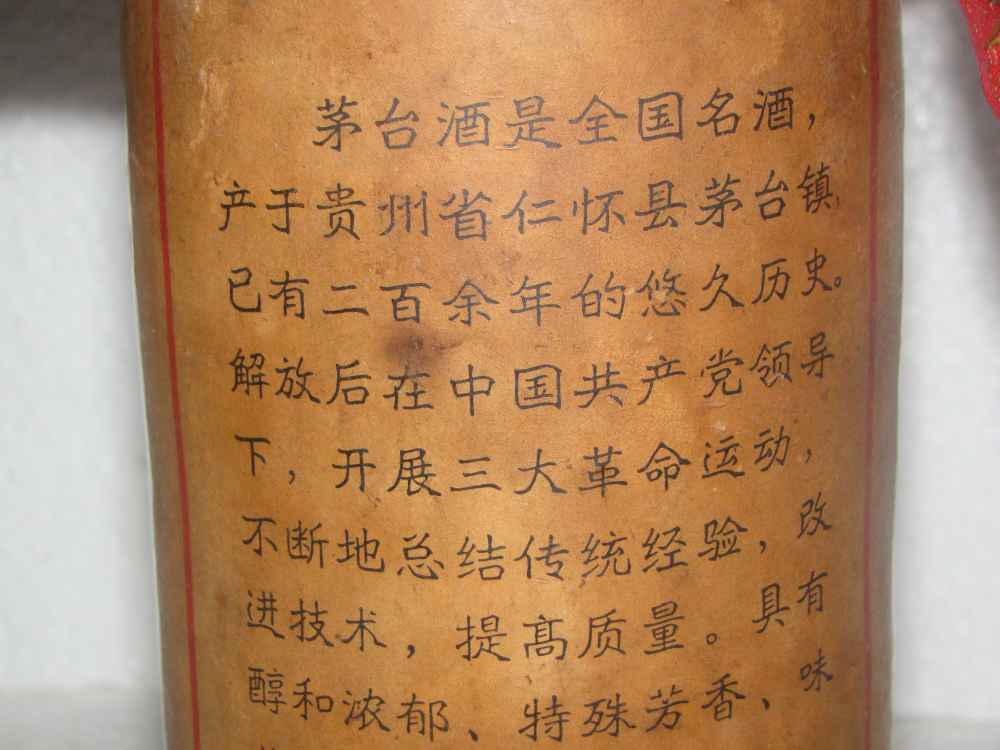 茅台酒是全国名酒，
产于贵州省仁怀县茅台镇，
已有二百余年的悠久历史。
解放后在中国共产党领导
下，开展三大革命运动，
不断地总结传统经验，改
进技术，提高质量。具有
醇和浓郁、特殊芳香、味